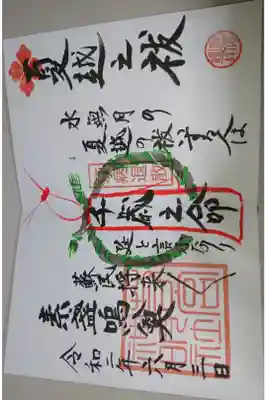 夏越之祓
水無月の
夏越の祓する人は
千歳之命
延と言ふなり
蘇民将来
素盞嗚尊
令和二年六月三日